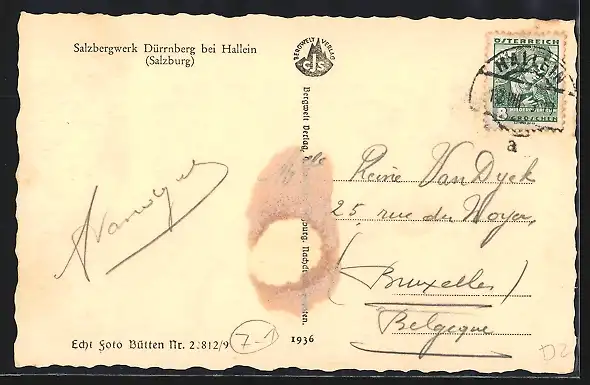 Salzbergwerk Dürrnberg bei Hallein
(Salzburg)
BERGWELT VERLAG
CJS
Bergwelt Verlag,
burg. Nachdr
ten.
ÖSTERREICH
HALLEIN
8 GROSCHEN
a
Reine Van Dyck
25, rue du Noyer,
(Bruxelles)
Belgique
Echt Foto Bütten Nr. 2.812/9
7-1
1936
D2